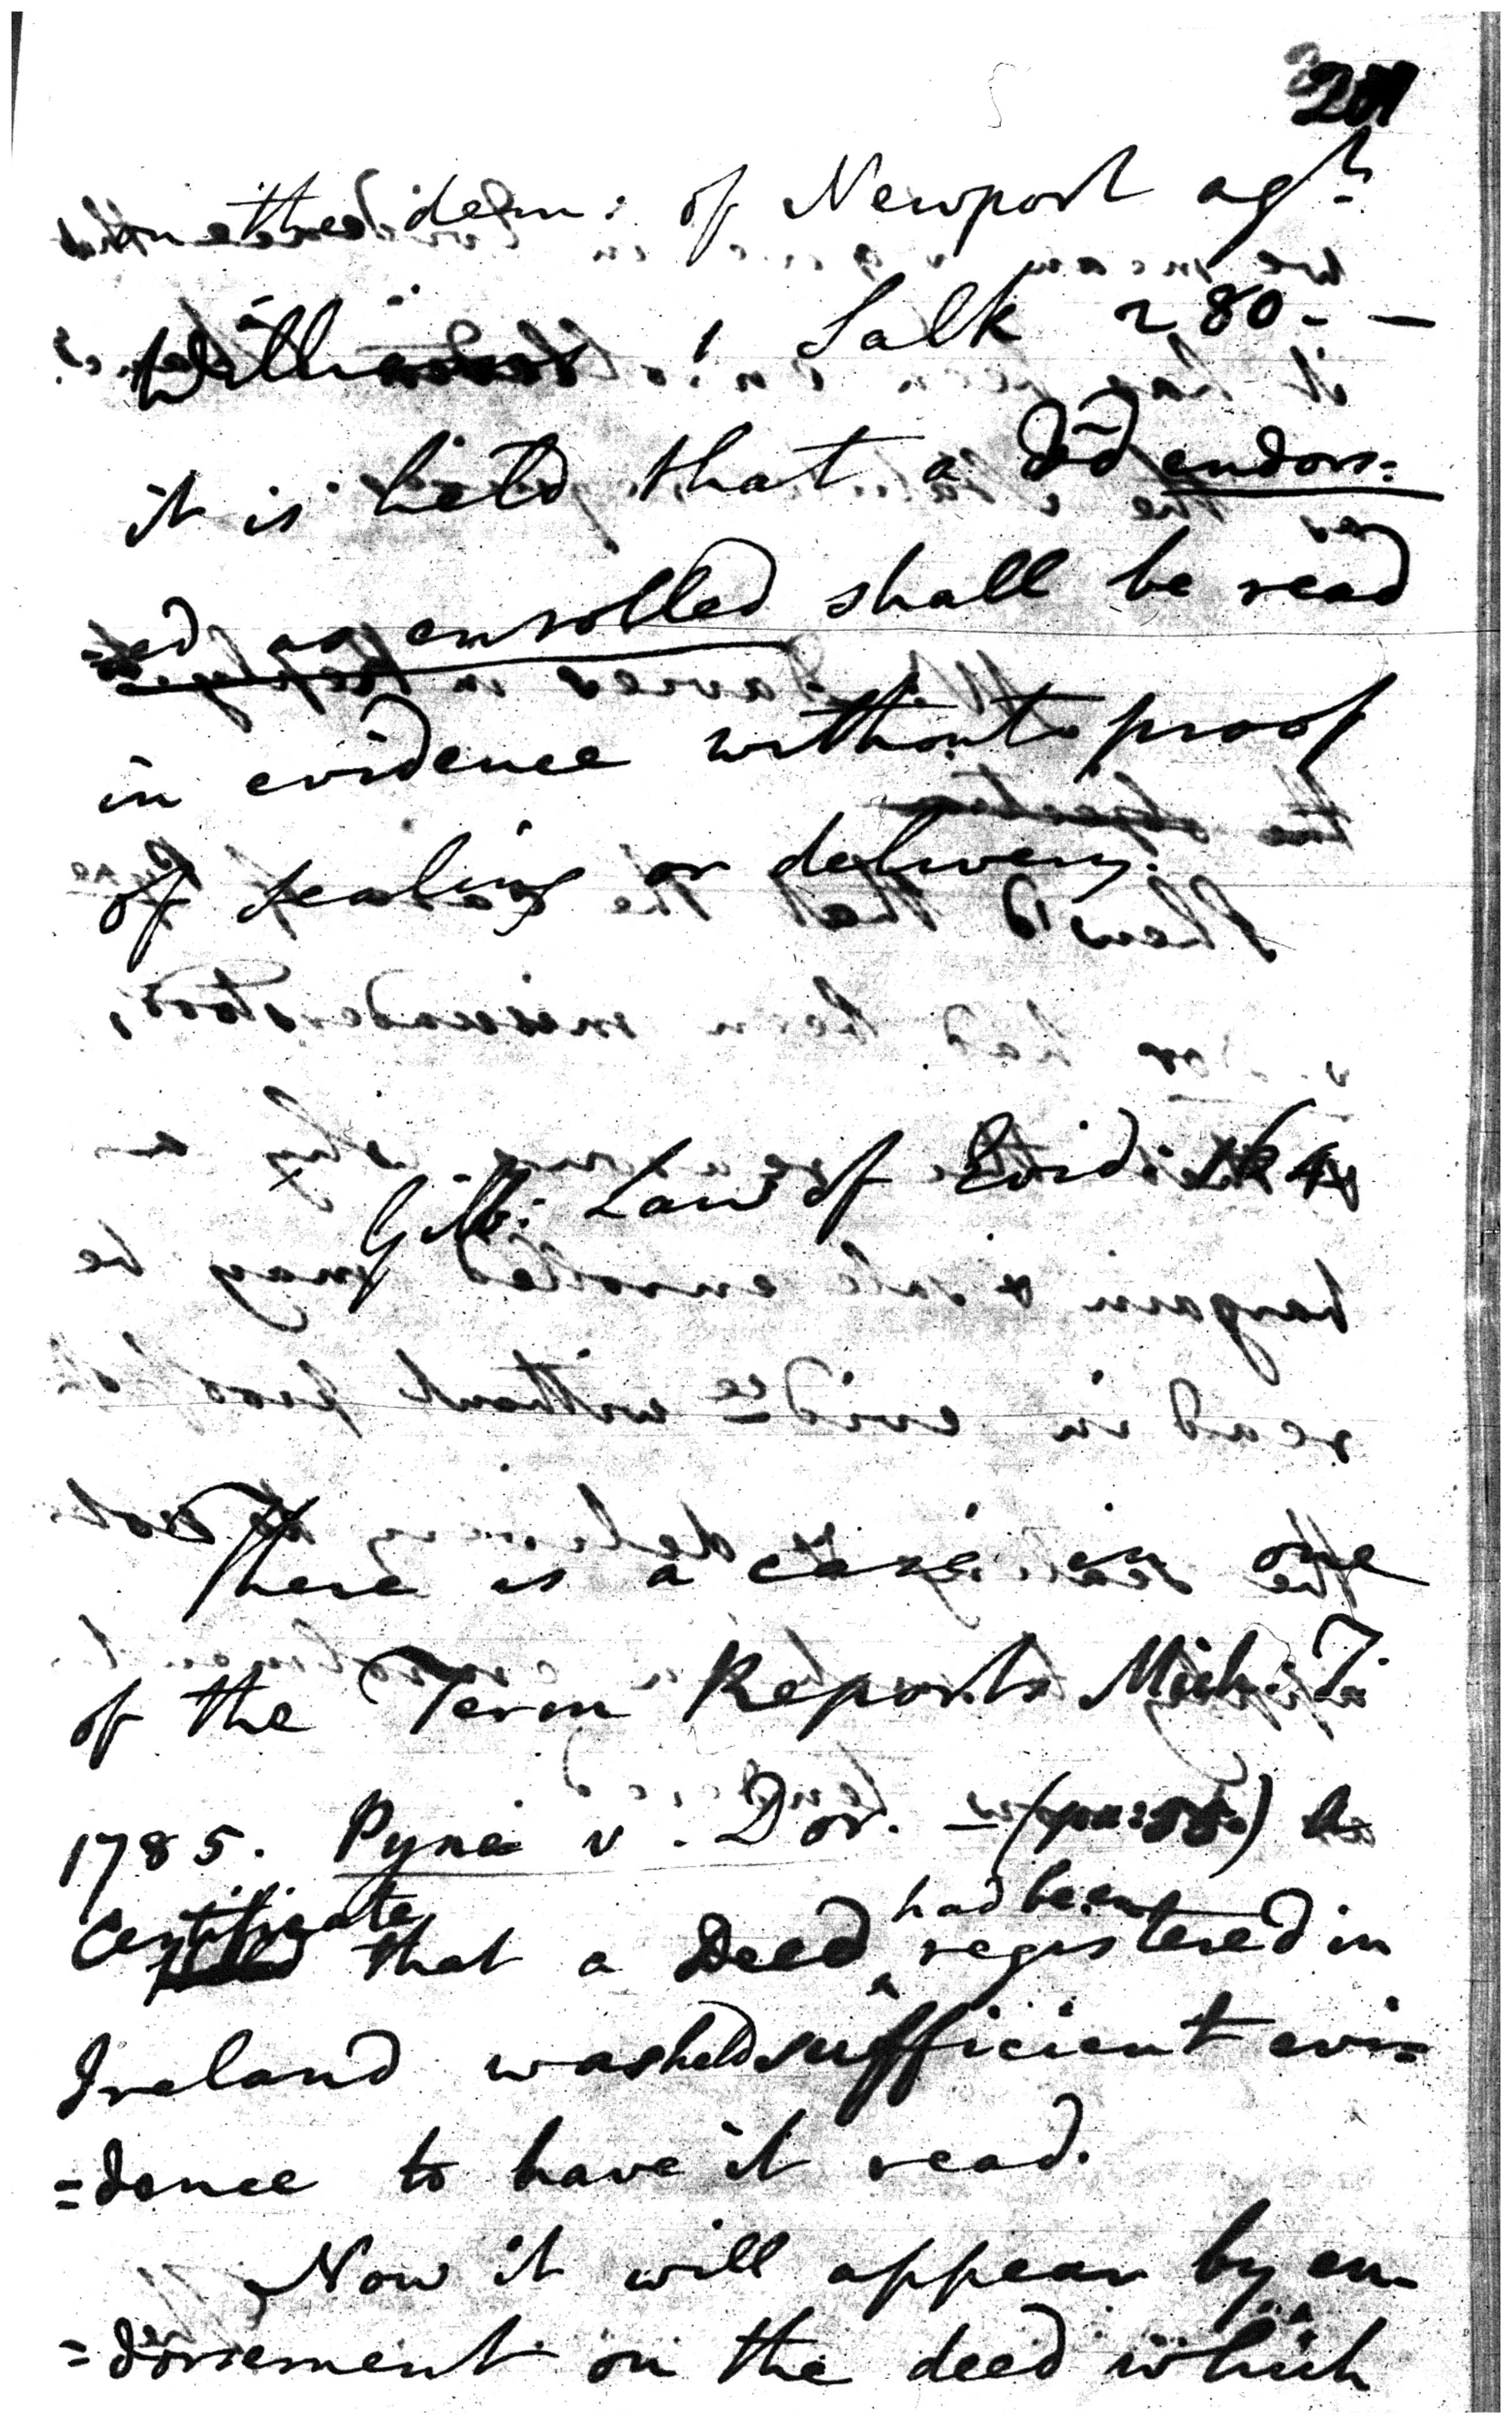 on the dem: of Newport agt
1 Salk 280. —
it is held that a Deed endors:
=ed as enrolled shall be read
in evidence without proof
of sealing or delivery.
Gilb: Law of Evid:
There is a case in one
of the Term Reports Mich: T.
1785. Pyne v. Dor. — (pa: 55.) A
Certificate that a Deed had been registered in
Ireland was held sufficient evi=
=dence to have it read.
Now it will appear by en=
=dorsement on the deed which